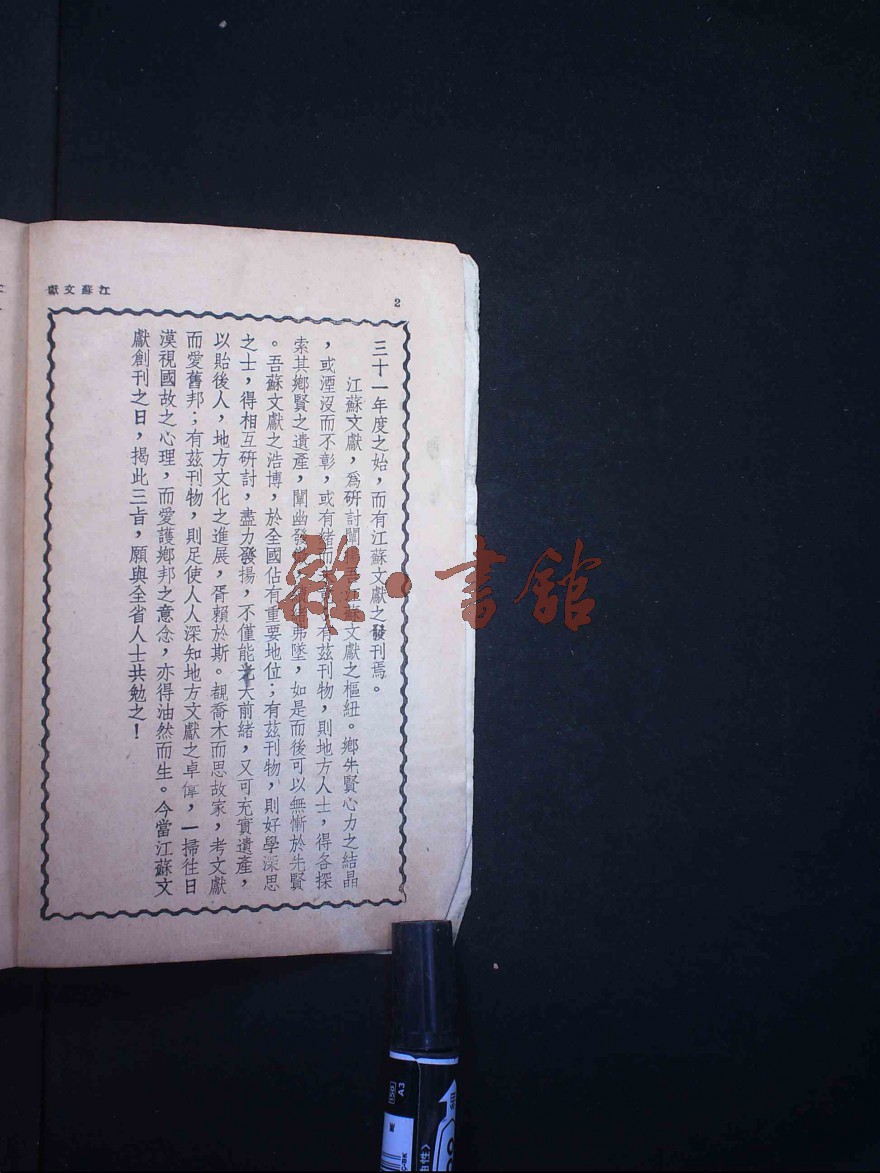 江蘇文獻
2
三十一年度之始，而有江蘇文獻之發刊焉。
江蘇文獻，爲研討闡揚 江蘇文獻之樞紐。鄉先賢心力之結晶
，或湮沒而不彰，或有緒而 有茲刊物，則地方人士，得各探
索其鄉賢之遺產，闡幽發 弗墜，如是而後可以無慚於先賢
。吾蘇文獻之浩博，於全國佔有重要地位；有茲刊物，則好學深思
之士，得相互研討，盡力發揚，不僅能光大前緒，又可充實遺產，
以貽後人，地方文化之進展，胥賴於斯。覩喬木而思故家，考文獻
而愛舊邦；有茲刊物，則足使人人深知地方文獻之卓偉，一掃往日
漠視國故之心理，而愛護鄉邦之意念，亦得油然而生。今當江蘇文
獻創刊之日，揭此三旨，願與全省人士共勉之！
雜·書館
150
A3